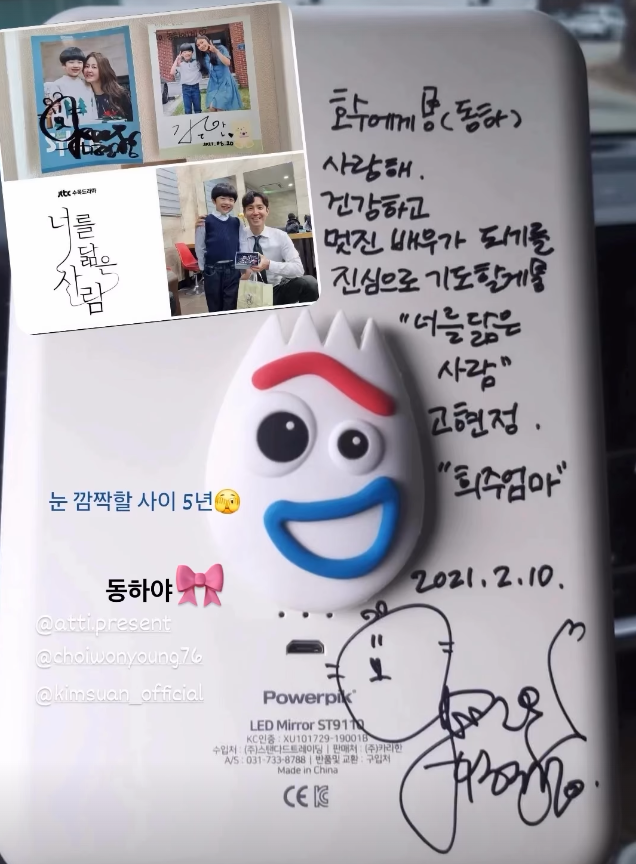 2021.02.20
jtbc 수목드라마
너를
닮은
사람
호수에게 몽(동하)
사랑해.
건강하고
멋진 배우가 되기를
진심으로 기도할게
"너를닮은
사람"
고현정.
"희주엄마"
2021.2.10.
눈 깜짝할 사이 5년🫣
동하야🎀
@atti.present
@choiwonyoung76
@kimsuan_official
Powerpik
LED Mirror ST9110
KC인증 : XU101729-19001B
수입처 : (주)스탠다드트레이딩 | 판매처 : (주)카라한
A/S : 031-733-8788 | 반품및 교환 : 구입처
Made in China
CE